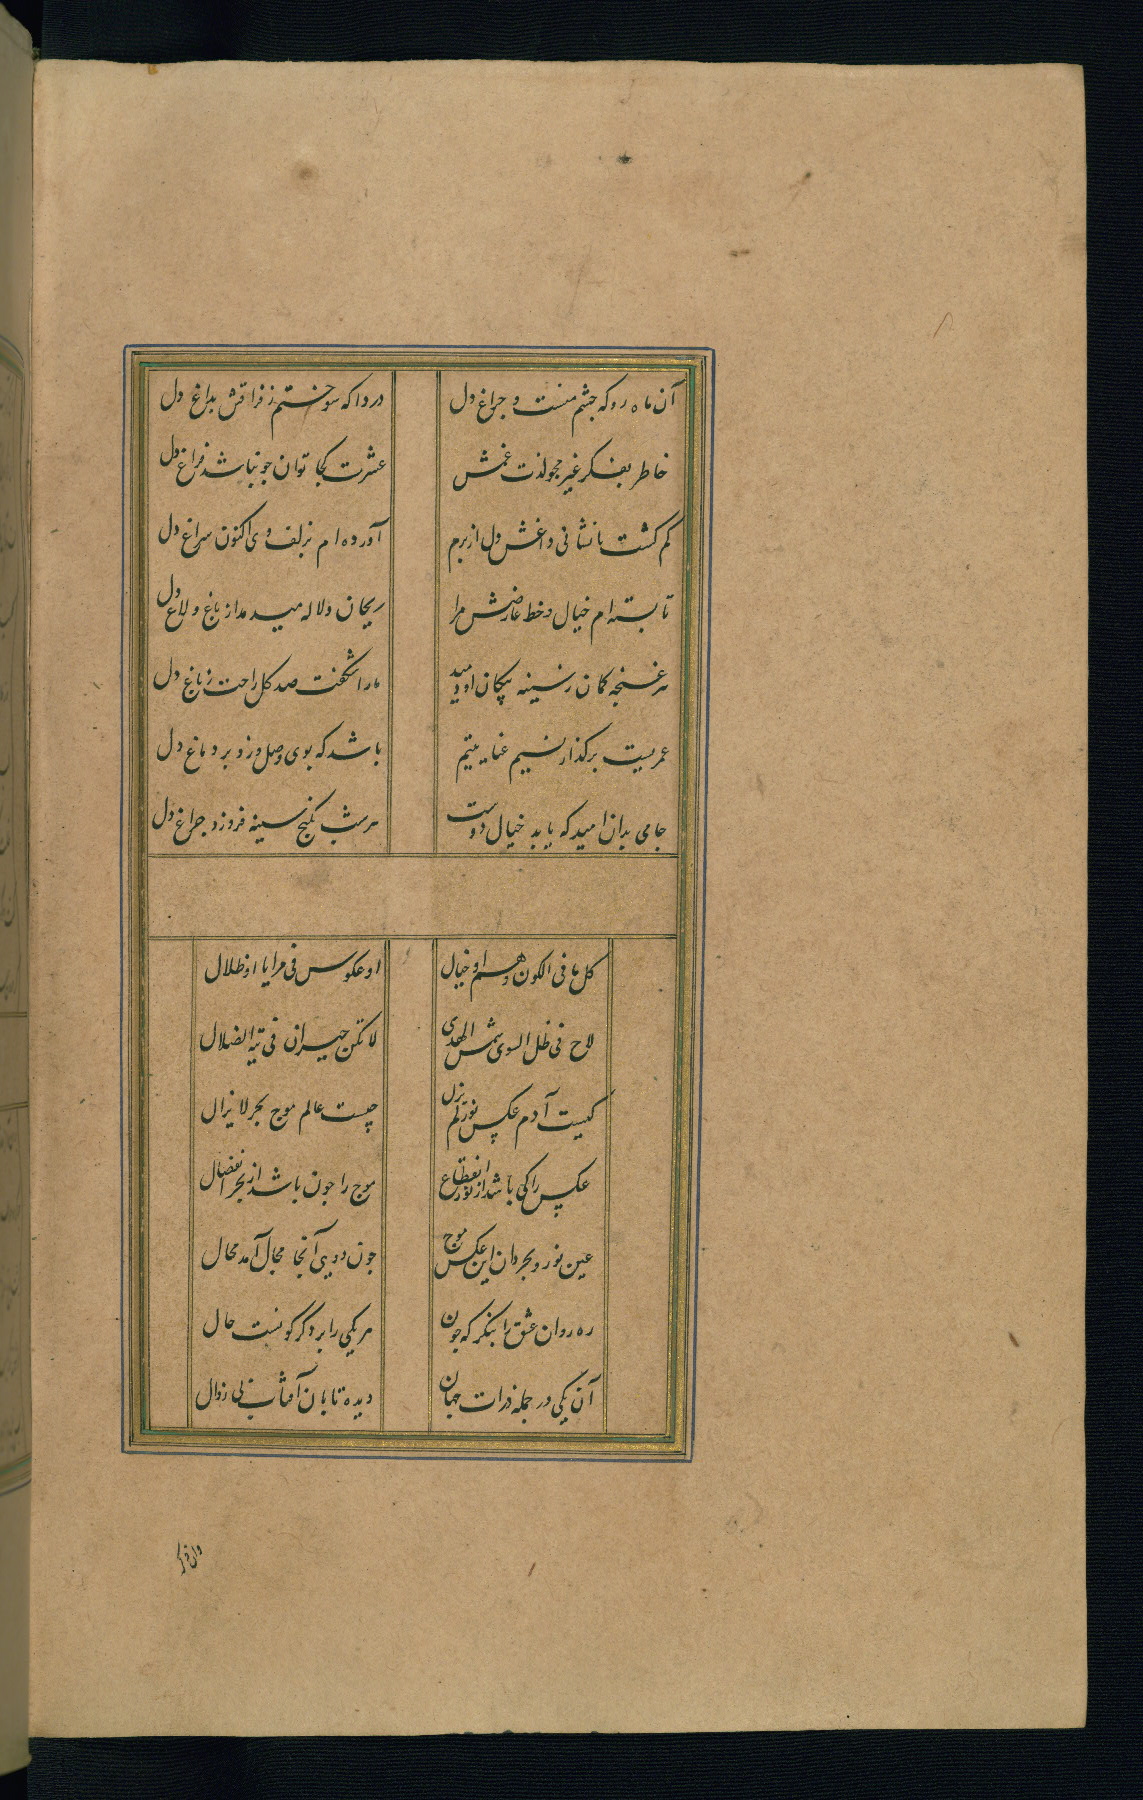 آن ماه رو که چشم منست و چراغ دل
دردا که سوختم ز فراقش بداغ دل
خاطر بفکر غیر مجو لذت غمش
عشرت کجا توان چو نباشد فراغ دل
گم گشت با نشانی داغش دل از برم
آورده‌ام بزلف وی اکنون سراغ دل
تا بسته‌ام خیال و خط عارضش مرا
ریحان و لاله میدمد از باغ و لاغ دل
هر غنچه کان ز سینه پیکان او دمید
ما را شگفت صد گل راحت ز باغ دل
عمریست بر گذار نسیم عنایتیم
باشد که بوی وصل وزد بر دماغ دل
جامی بدان امید که یابد خیال دوست
هر شب بکنج سینه فروزد چراغ دل
کل ما فی الکون وهم او خیال
او عکوس فی مرایا او ظلال
لاح فی ظل السوی شمس الهدی
لا تکن حیران فی تیه الضلال
کیست آدم عکس نور لم یزل
چیست عالم موج بحر لا یزال
عکس را کی باشد از نور انقطاع
موج را چون باشد از بحر انفصال
عین نور و بحر دان این عکس و موج
چون دویی آنجا مجال آمد محال
ره روان عشق را بنگر که چون
هر یکی را بر دگر گونست حال
آن یکی در جمله ذرات جهان
دیده تابان آفتاب بی زوال
وان دگر